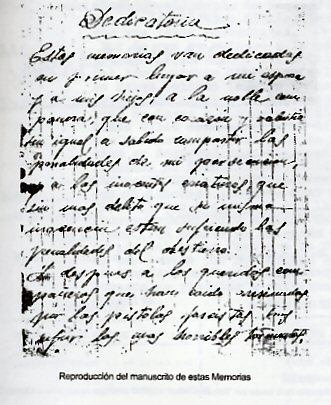 Dedicatoria
Estas memorias van dedicadas
en primer lugar a mi esposa
y a mis hijos, a la noble com
pañera, que con corazon y
sin igual a sabido compartir las
penalidades de mi persecucion
a los inocentes criaturas, que
sin mas delito que su misma
inocencia estan sufriendo las
penalidades del destierro.
despues a los queridos com
pañeros que han caido asesinados
por las pistolas fascistas
sufrir las mas horribles tormentos.
Reproducción del manuscrito de estas Memorias